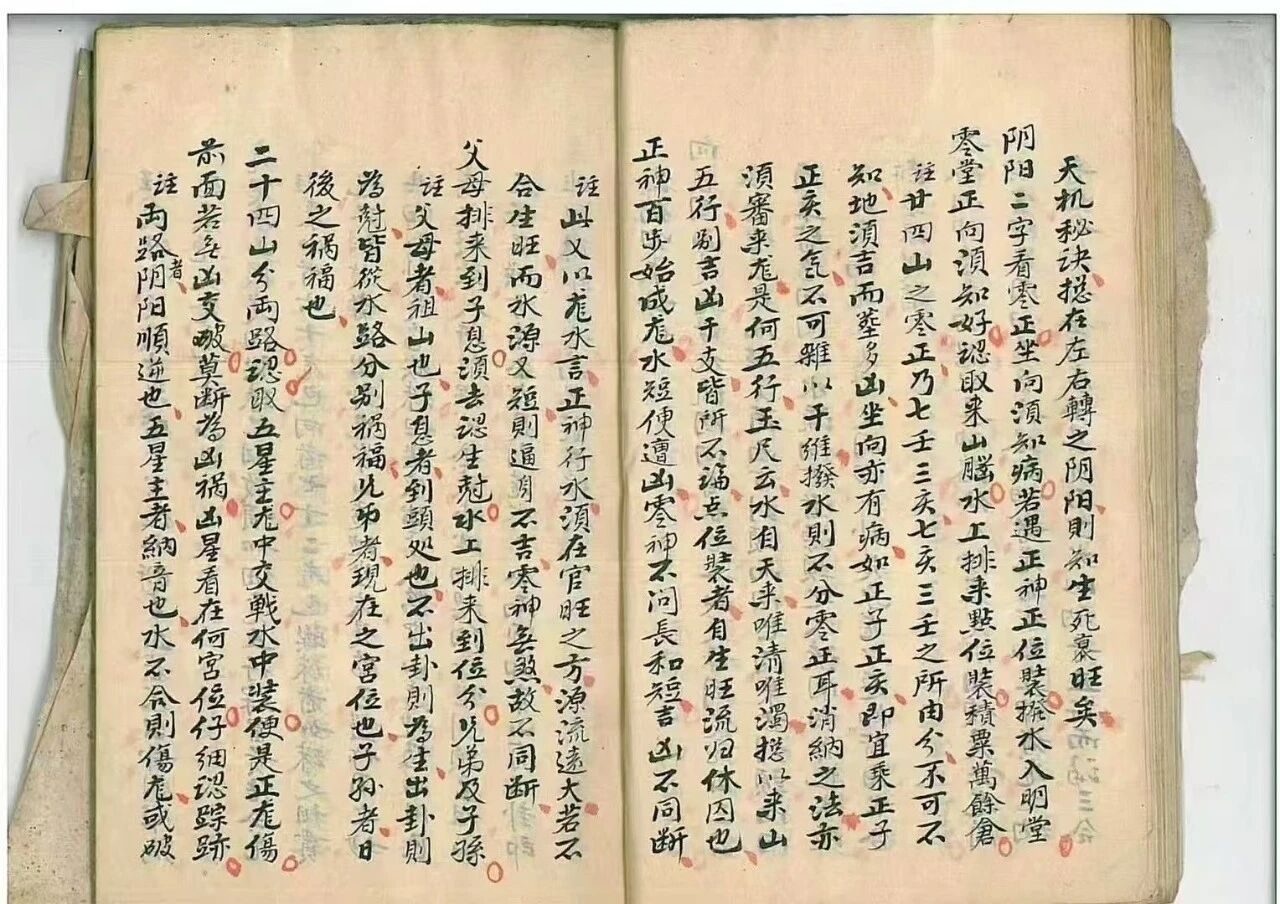 天机秘诀揔在左右轉之阴阳则知生死衰旺矣
阴阳二字看零正坐向须知病若遇正神正位装撥水入明堂
零堂正向须知好认取来山腦水上排来點位装積粟萬餘倉
註廿四山之零正乃七壬三亥七亥三壬之所由分不可不
知地须吉而塟多凶坐向亦有病如正子正亥即宜乘正子
正亥之气不可雜以干維撥水则不分零正耳消納之法亦
须審来龙是何五行玉尺云水自天来唯清唯濁揔以来山
五行别吉凶干支皆所不論点位装者自生旺流归休囚也
正神百步始成龙水短便遭凶零神不问長和短吉凶不同断
註此又以龙水言正神行水须在官旺之方源流遠大若不
合生旺而水源又短则逼身不吉零神無煞故不同断
父母排来到子息须去认生尅水上排来到位分兄弟及子孫
註父母者祖山也子息者到頭处也不出卦则為生出卦则
為尅皆從水路分别祸福兄弟者現在之宫位也子孙者日
後之祸福也
二十四山分両路认取五星主龙中交戦水中装便是正龙傷
前面若無凶交破莫断為凶祸凶星看在何宫位仔细认踪跡
註両路者阴阳順逆也五星主者納音也水不合则傷龙或破